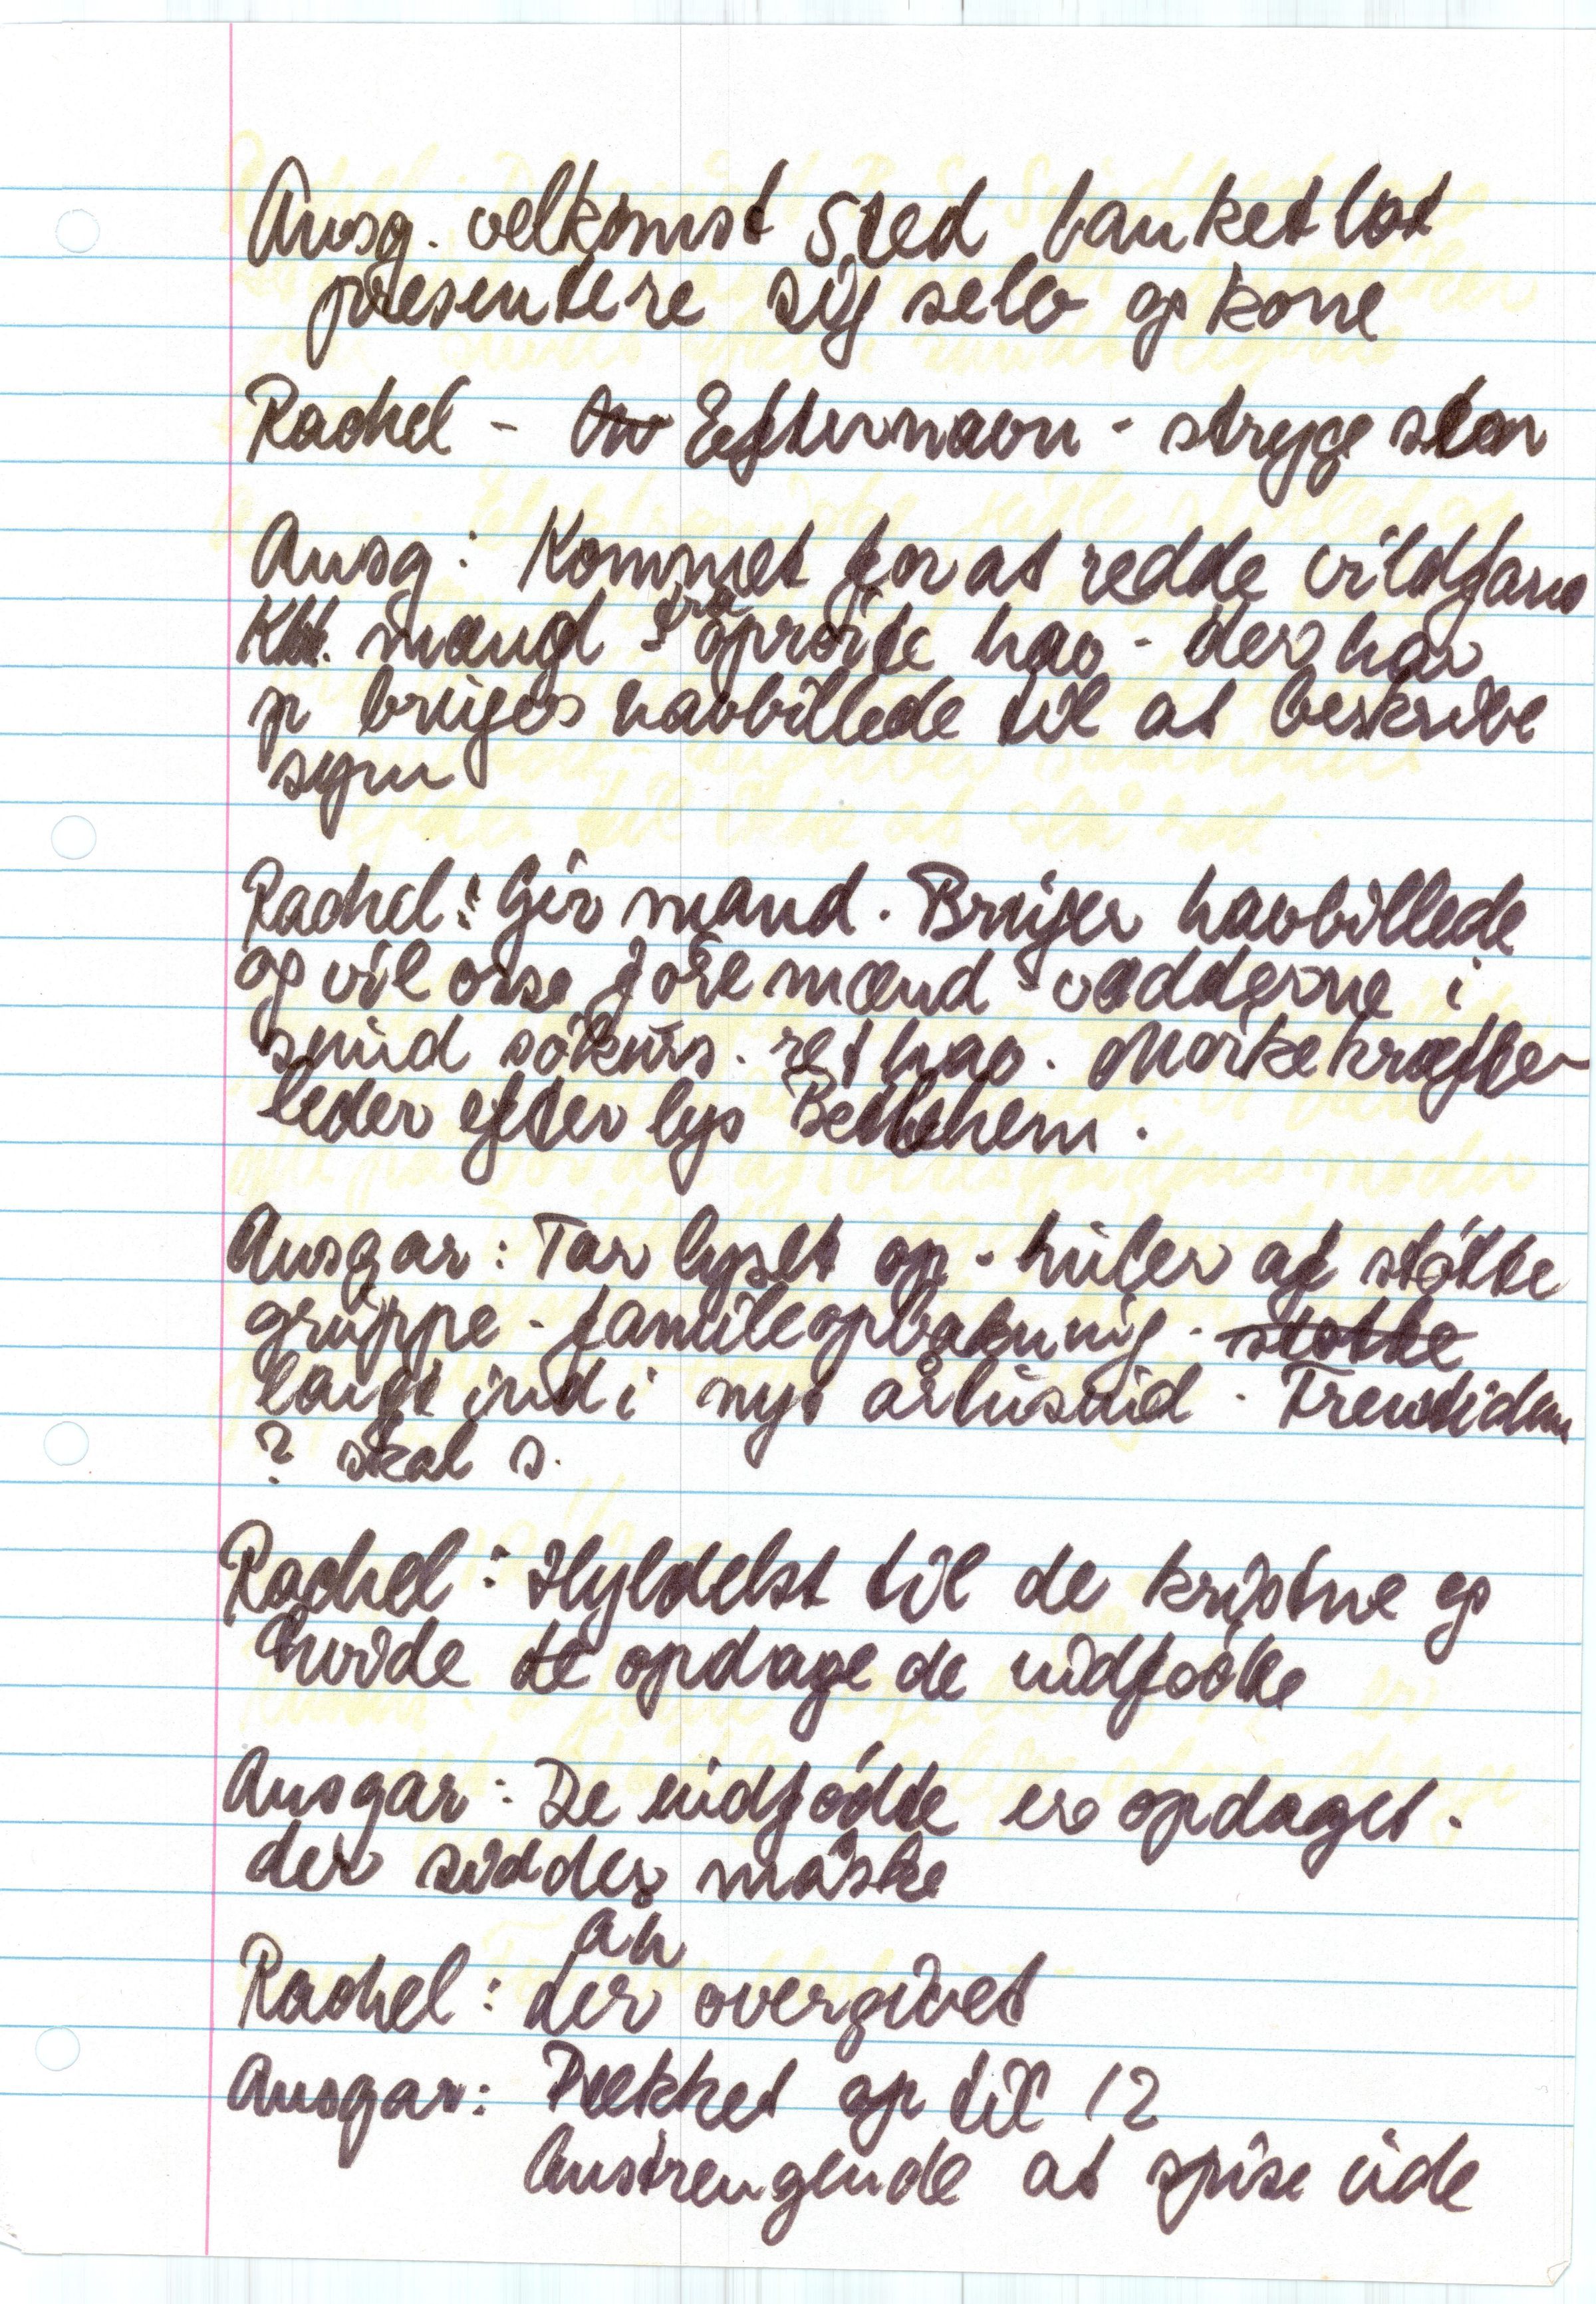 Ansg. velkomst sted banketlot
presentere sig selv og kone
Rachel - Efternavn - stryge sten
Ansg: Kommet for at redde vildfarn
mænd fra oprørte hav - der har
bruges havbillede til at beskrive
syn
Rachel: Gir mand. Bruger havbillede
og vil osse føre mænd vædderne i
sund søkurs. ret hav. Mørkekræfter
leder efter lys Betlehem.
Ansgar: Tar lyset op - huler af støtte
gruppe - familieopbakning - støtte
langt ind i nyt årtusind. Fremtiden
? skal s.
Rachel: Hyldelst til de kristne og
hvide de opdage de indfødte
Ansgar: De indfødte er opdaget.
der sidder måske
åh
Rachel: der overgivet
Ansgar: Dækket op til 12
Anstrengende at spise ude